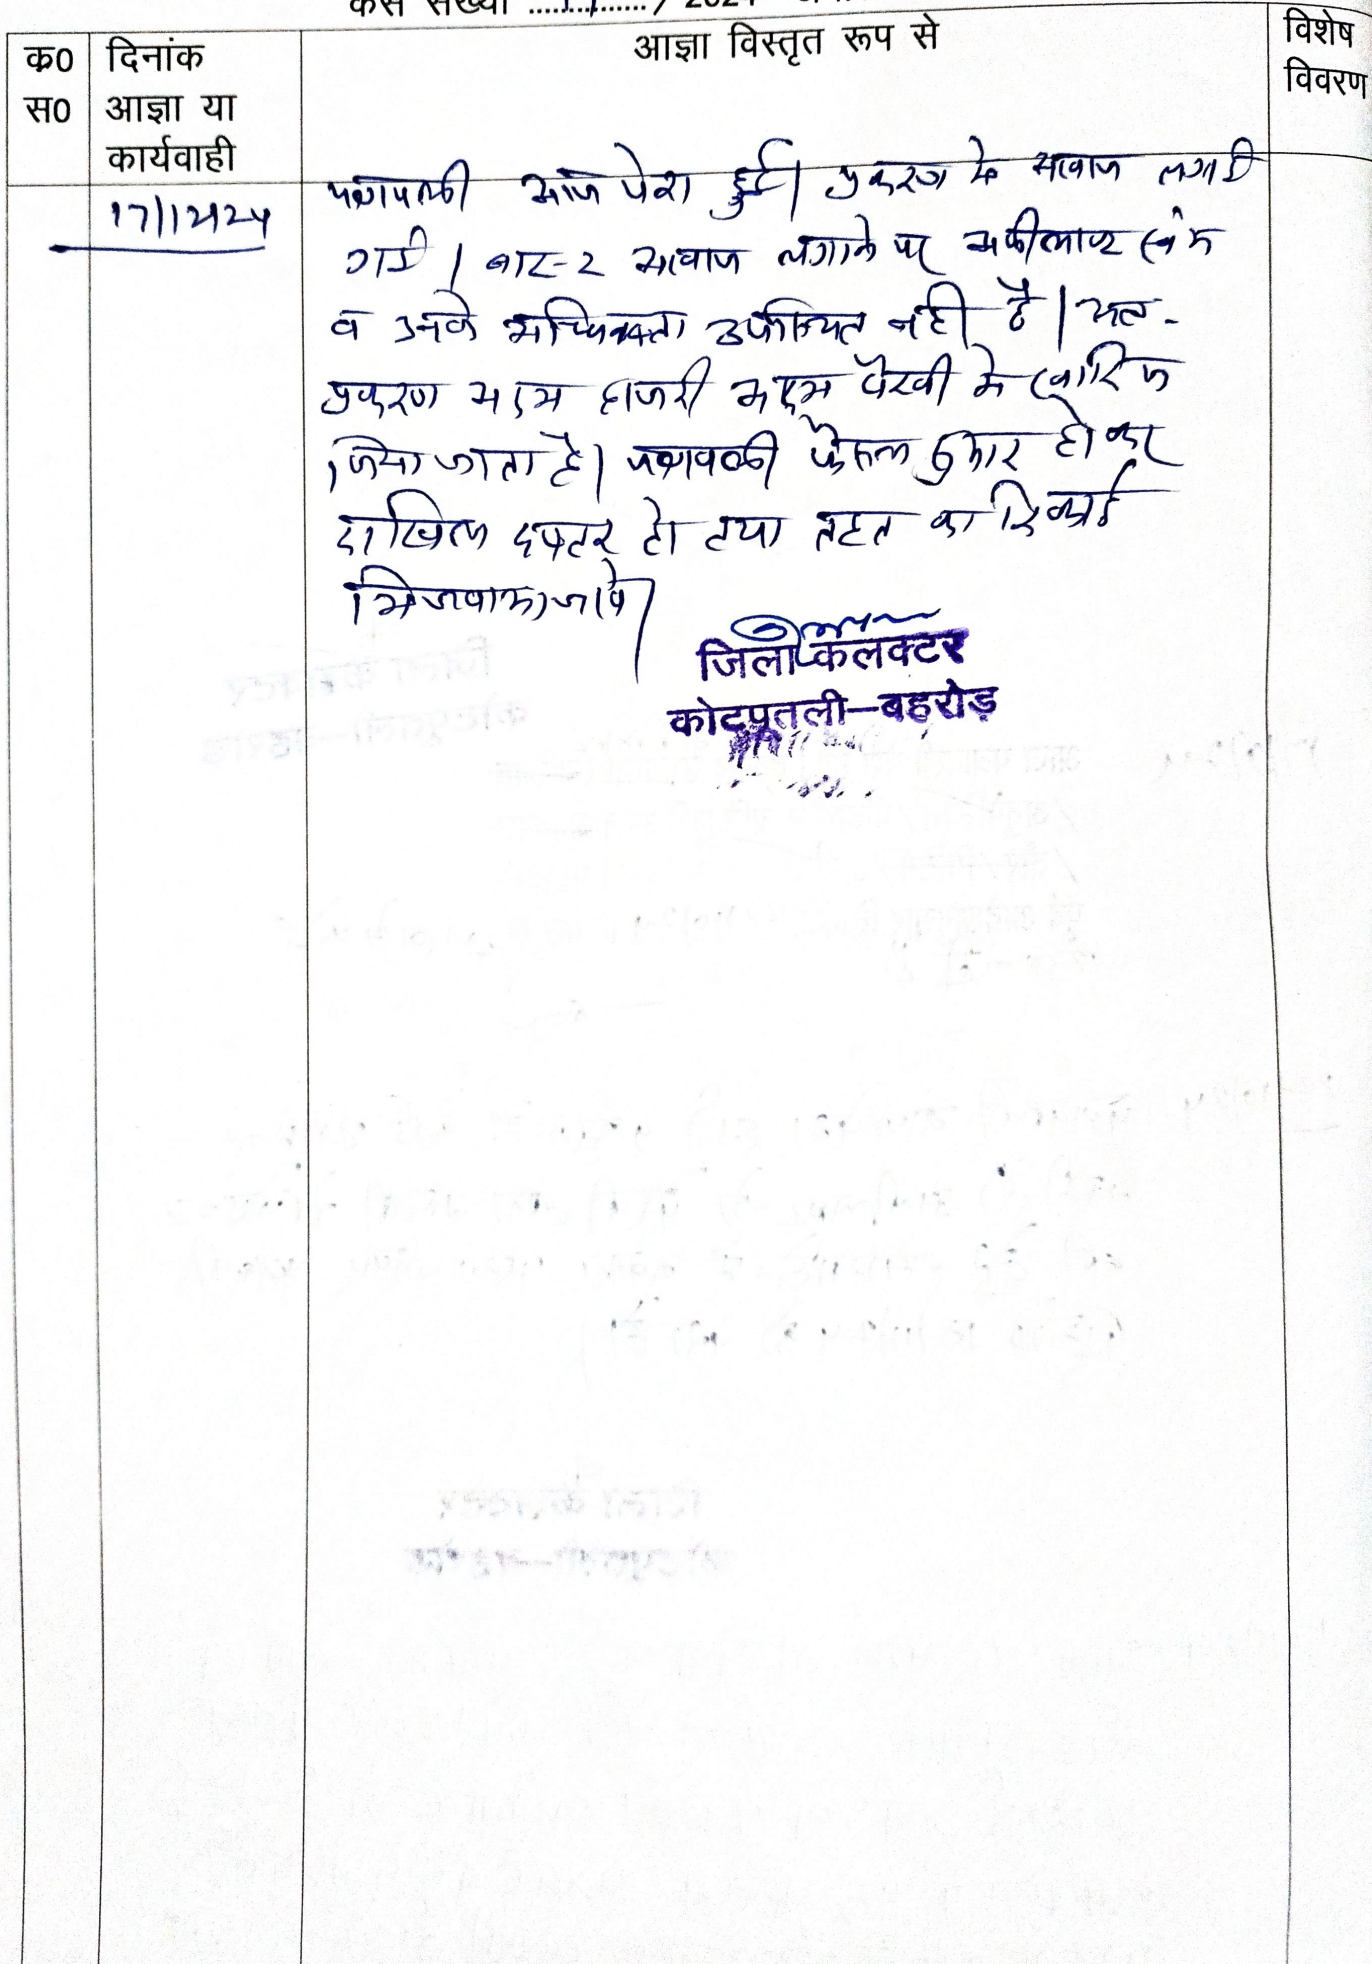 केस संख्या ................/ 2024
क0 स0
दिनांक आज्ञा या कार्यवाही
आज्ञा विस्तृत रूप से
विशेष विवरण
17/12/24
पत्रावली आज पेश हुई। प्रकरण में आवाज लगाई
गई। बार-2 आवाज लगाने पर अपीलाण्ट स्वंय
व उनके अधिवक्ता उपस्थित नही है। अतः
प्रकरण अदम हाजरी अदम पैरवी मे खारिज
किया जाता है। पत्रावली फैसल शुमार होकर
दाखिल दफ्तर हो तथा तहत का रिकार्ड
भिजवाया जावे।
जिला कलक्टर
कोटपूतली–बहरोड़